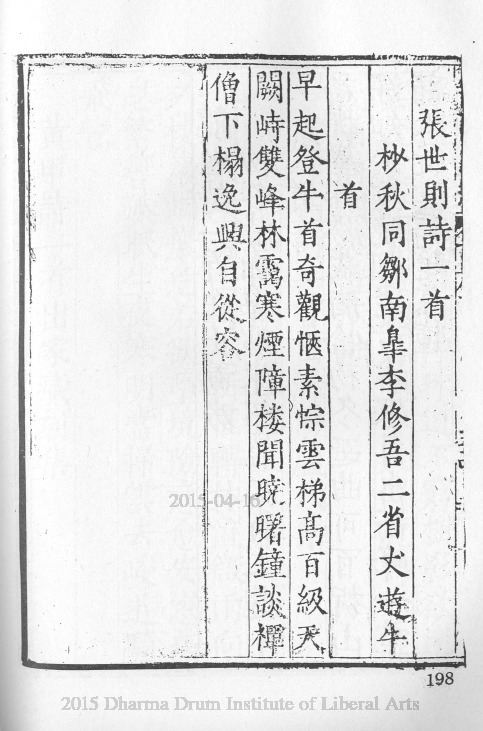 張世則詩一首
杪秋同鄒南臯李修吾二省丈遊牛
首
早起登牛首奇觀愜素悰雲梯高百級天
闕峙雙峰林靄寒煙障樓聞曉曙鐘談禪
僧下榻逸興自從容
2015-04-16
198
2015 Dharma Drum Institute of Liberal Arts